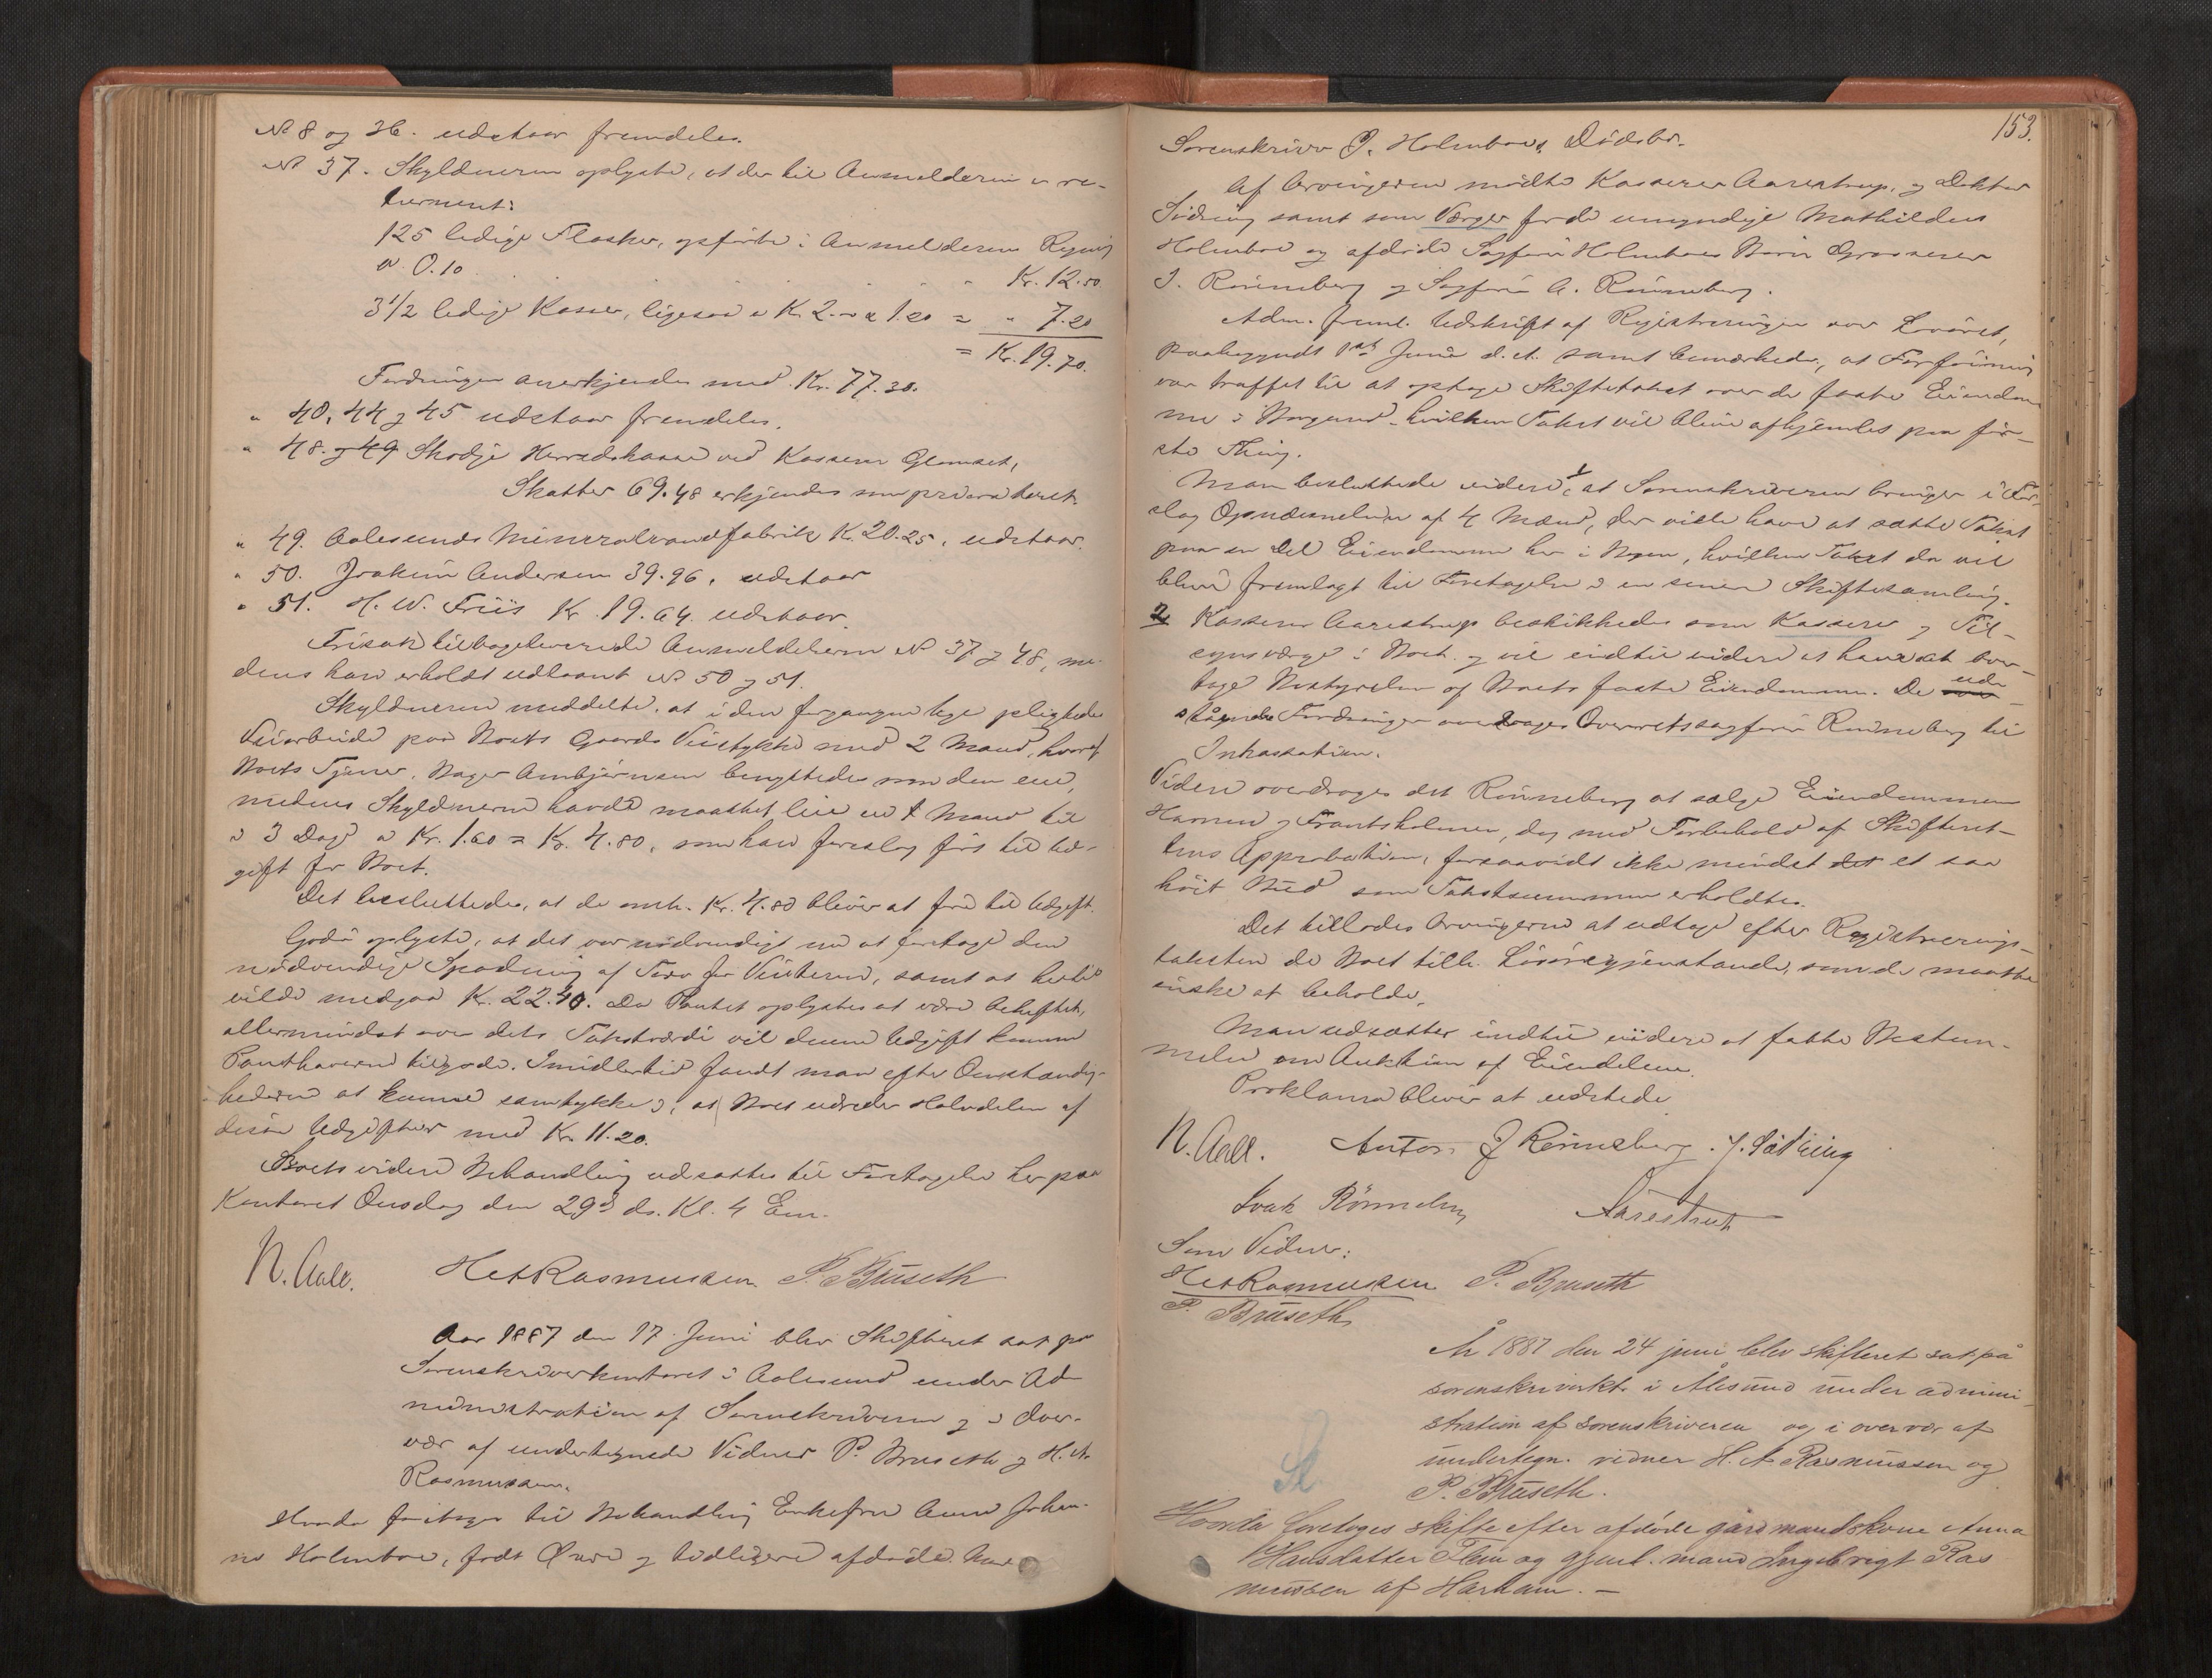 No 8 og 36. udstaar fremdeles.
No 37. Skyldneren oplyste, at der til Anmelderen er re-
turneret:
125 ledige Flasker, opførte i Anmelderens Regning
a 0.10 . . . . . . Kr. 12.50
3 1/2 ledige Kasser, ligesaa a Kr. 2. a 1.20 = " 7.20
= Kr. 19.70.
Fordringen anerkjendes med Kr. 77.30.
" 40, 44 og 45 udstaar fremdeles.
" 48. og 49 Skodje Herredskasse ved Kasserer Glomset,
Skatter 69.48 erkjendes som prioriteret.
" 49. Aalesunds Mineralvandfabrik K. 20.25, udstaar.
" 50. Joakim Andersen 39.96, udstaar
" 51. H. W. Friis Kr. 19.64. udstaar.
Frisak tilbageleverede Anmeldelserne No 37 og 48, me-
dens han erholdt udlaant No 50 og 51.
Skyldneren meddelte, at i den forgangne Uge pligtedes
Veiarbeide paa Boets Gaards Veistykke med 2 Mand, hvoraf
Boets Tjener, Unger Ambjørnsen benyttedes som den ene,
medens Skyldneren havde maattet leie en 1 Mand til
i 3 Dage a Kr. 1.60 = Kr. 4.80, som han foreslog ført til Ud-
gift for Boet.
Det besluttedes, at de omh. Kr. 4.80 bliver at føre til Udgift.
Godø oplyste, at det var nødvendigt nu at foretage den
nødvendige Spadning af Torv for Vinteren, samt at hertil
vilde medgaa Kr. 22.40. Da Pantet oplystes at være beheftet,
allermindst over dets Takstværdi vil denne Udgift komme
Panthaverne tilgode. Imidlertid fandt man efter Omstændig-
hederne at kunne samtykke i, at Boet udreder Halvdelen af
disse Udgifter med Kr. 11.20.
Boets videre Behandling udsattes til Foretagelse her paa
Kontoret Onsdag den 29de ds. Kl. 4 Em.
N. Aall. H A Rasmussen P. Bruseth
Aar 1887 den 17. Juni blev Skifteret sat paa
Sorenskriverkontoret i Aalesund under Ad-
ministration af Sorenskriveren og i Over-
vær af undertegnede Vidner P. Bruseth og H. A.
Rasmussen.
Hvorda foretoges til Behandling Enkefru Anna Johan-
ne Holmboe, født Øwre og tidligere afdøde Mand
153.
Sorenskriver J. Holmboes Dødsbo.
Af Arvingerne mødte Kasserer Aarestrup, og Doktor
Sødring samt som Værger for de umyndige Mathildes
Holmboe og afdøde Sagfører Holmboes Børn Grosserer
I. Rønneberg og Sagfører A. Rønneberg.
Adm. freml. Udskrift af Registreringen over Løsøret,
paabegyndt 1ste Juni d. A. samt bemærkede, at Forføining
var truffet til at optage Skiftetakst over de faste Eiendom-
me i Borgund, hvilken Takst vil blive afhjemlet paa før-
ste Thing.
Man besluttede videre: 1, at Sorenskriveren bringer i For-
slag Opnævnelse af 4 Mænd, der ville have at sætte Takst
paa en Del Eiendomme her i Byen, hvilken Takst da vil
blive fremlagt til Foretagelse i en senere Skiftesamling.
2 Kasserer Aarestrup beskikkedes som Kasserer og Til-
synsværge i Boet og vil indtil videre at have at over-
tage Bestyrelsen af Boets faste Eiendomme. De ude
staaende Fordringer overdrages Overretssagfører Rønneberg til
Inkassation.
Videre overdroges det Rønneberg at sælge Eiendommen
Hamen og Frantsholmen, dog med Forbehold af Skifteret-
tens Approbation, forsaavidt ikke mindst det et saa
høit Bud som Takstsummen erholdtes.
Det tillodes Arvingerne at udtage efter Registrerings-
taksten de Boet tilh. Løsøregjenstande, som de maatte
ønske at beholde.
Man udsatter indtil videre at fatte Bestem-
melse om Auktion af Eiendelene.
Proklama bliver at udstede
N. Aall. Anton J Rønneberg. J. Sødring
Ivar Rønneberg Aarestrup
Som Vidner:
H A Rasmussen P. Bruseth
P. Bruseth
År 1887 den 24 juni blev skifteret sat på
sorenskriverkt. i Ålesund under admini-
stration af sorenskriveren og i overvær af
undertegn. vidner H. A Rasmussen og
P. Bruseth.
Hvorda foretoges skifte efter afdøde gårdmandskone Anna
Hansdatter Flem og gjenl. mand Ingebrigt Ras
mussen af Harham. —